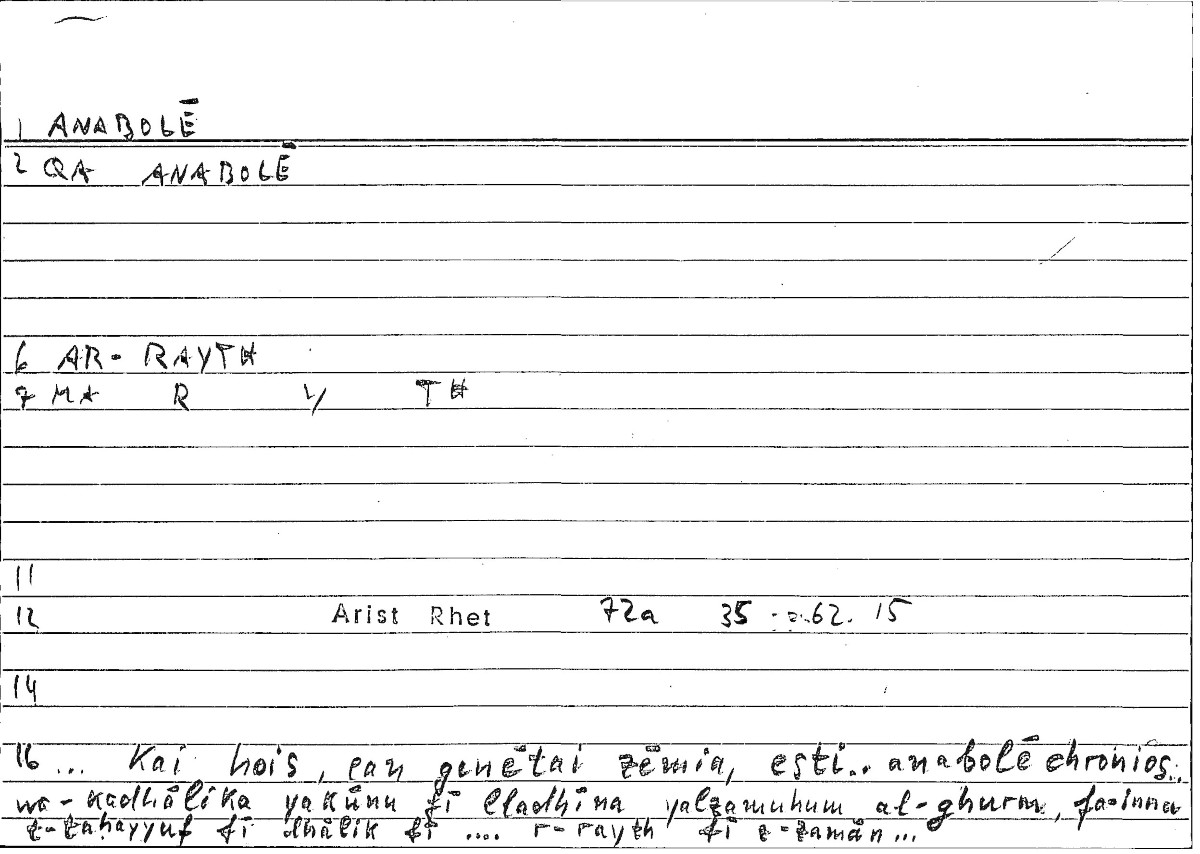 1 ANABOLĒ
2 QA ANABOLĒ
6 AR- RAYTH
7 MA R Y TH
11
12 Arist Rhet 72a 35 = 62. 15
14
16 ... Kai hois, ean genētai zēmia, esti.. anabolē chronios..
wa-kadhālika yakūnu fī lladhīna yalzamuhum al-ghurm, fa-inna
t-taḥayyuf fī dhālik fī .... r-rayth fī z-zamān...